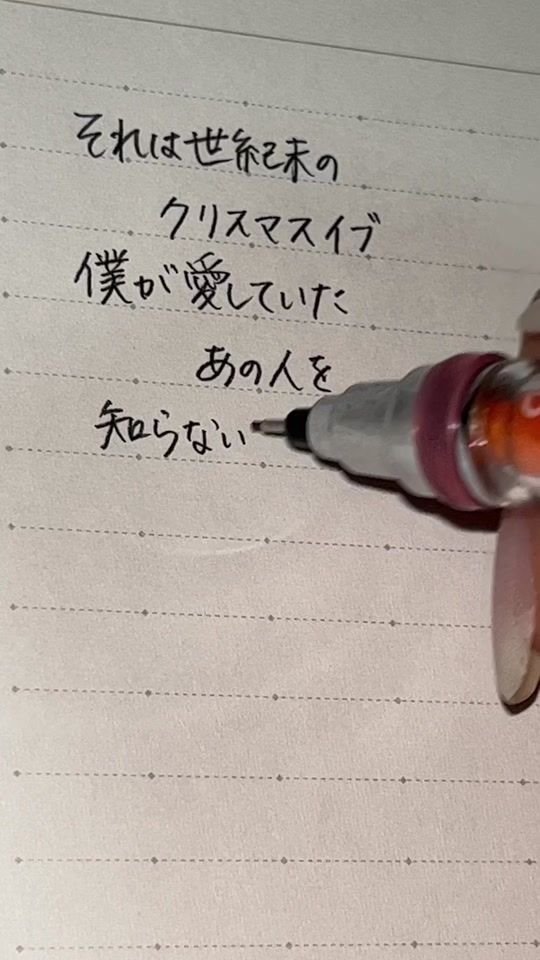 それは世紀末の
クリスマスイブ
僕が愛していた
あの人を
知らない